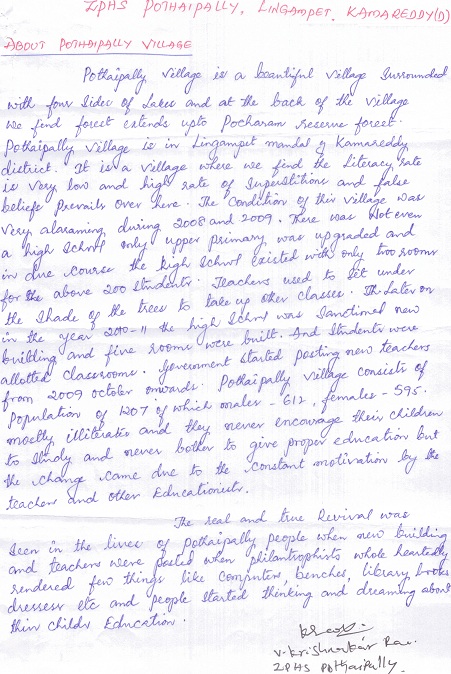 ZPHS POTHAIPALLY, LINGAMPET, KAMAREDDY(D)
ABOUT POTHAIPALLY VILLAGE
Pothaipally Village is a beautiful Village Surrounded
with four Sides of Lakes and at the back of the village
we find forest extends upto Pocharam reserve forest.
Pothaipally Village is in Lingampet mandal of Kamareddy
district. It is a village where we find the literacy rate
is very low and high rate of Superstitions and false
beliefs Prevails over here. The Condition of this village was
very alaraming during 2008 and 2009. There was Not even
a high School only upper primary was upgraded and
in due course the high School existed with only two rooms
for the above 200 Students. Teachers used to Sit under
the Shade of the trees to take up other classes. Later on
in the year 2010-11 the high School was Sanctioned new
building and five rooms were built. And Students were
allotted classrooms. Government started posting new teachers
from 2009 october onwards. Pothaipally Village consists of
Population of 1207 of which males - 612, females - 595.
mostly illiterates and they never encourage their children
to Study and never bother to give proper education but
the change came due to the constant motivation by the
teachers and other Educationists.
The real and true Revival was
Seen in the lives of pothaipally people when new building
and teachers were posted when philantrophists whole heartedly
rendered few things like computers, benches, library books
dresses etc and people started thinking and dreaming about
their childs Education.
V. Krishnakar Rao.
ZPHS Pothaipally.